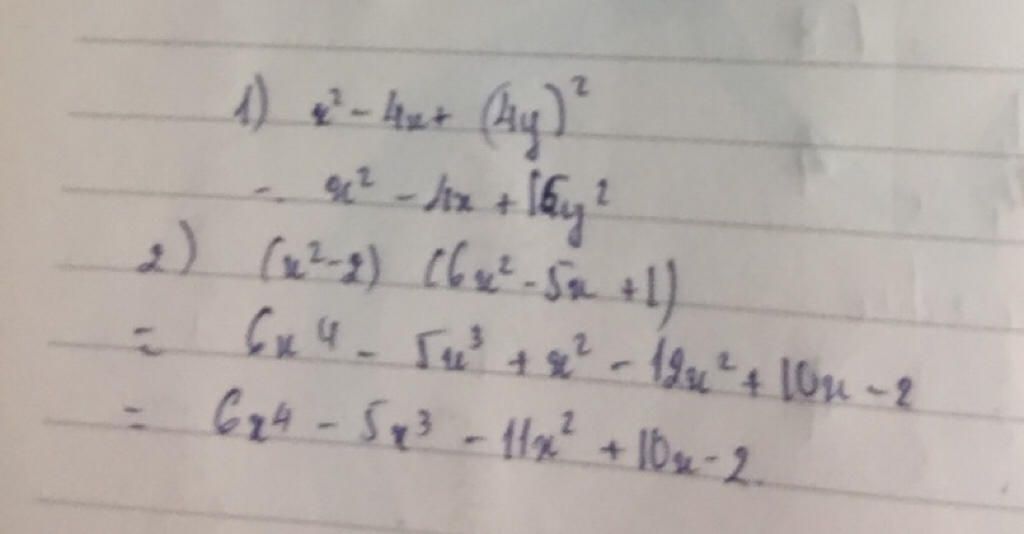 1) x² - 4x + (4y)²
= x² - 4x + 16y²
2) (x² - 2) (6x² - 5x + 1)
= 6x⁴ - 5x³ + x² - 12x² + 10x - 2
= 6x⁴ - 5x³ - 11x² + 10x - 2.